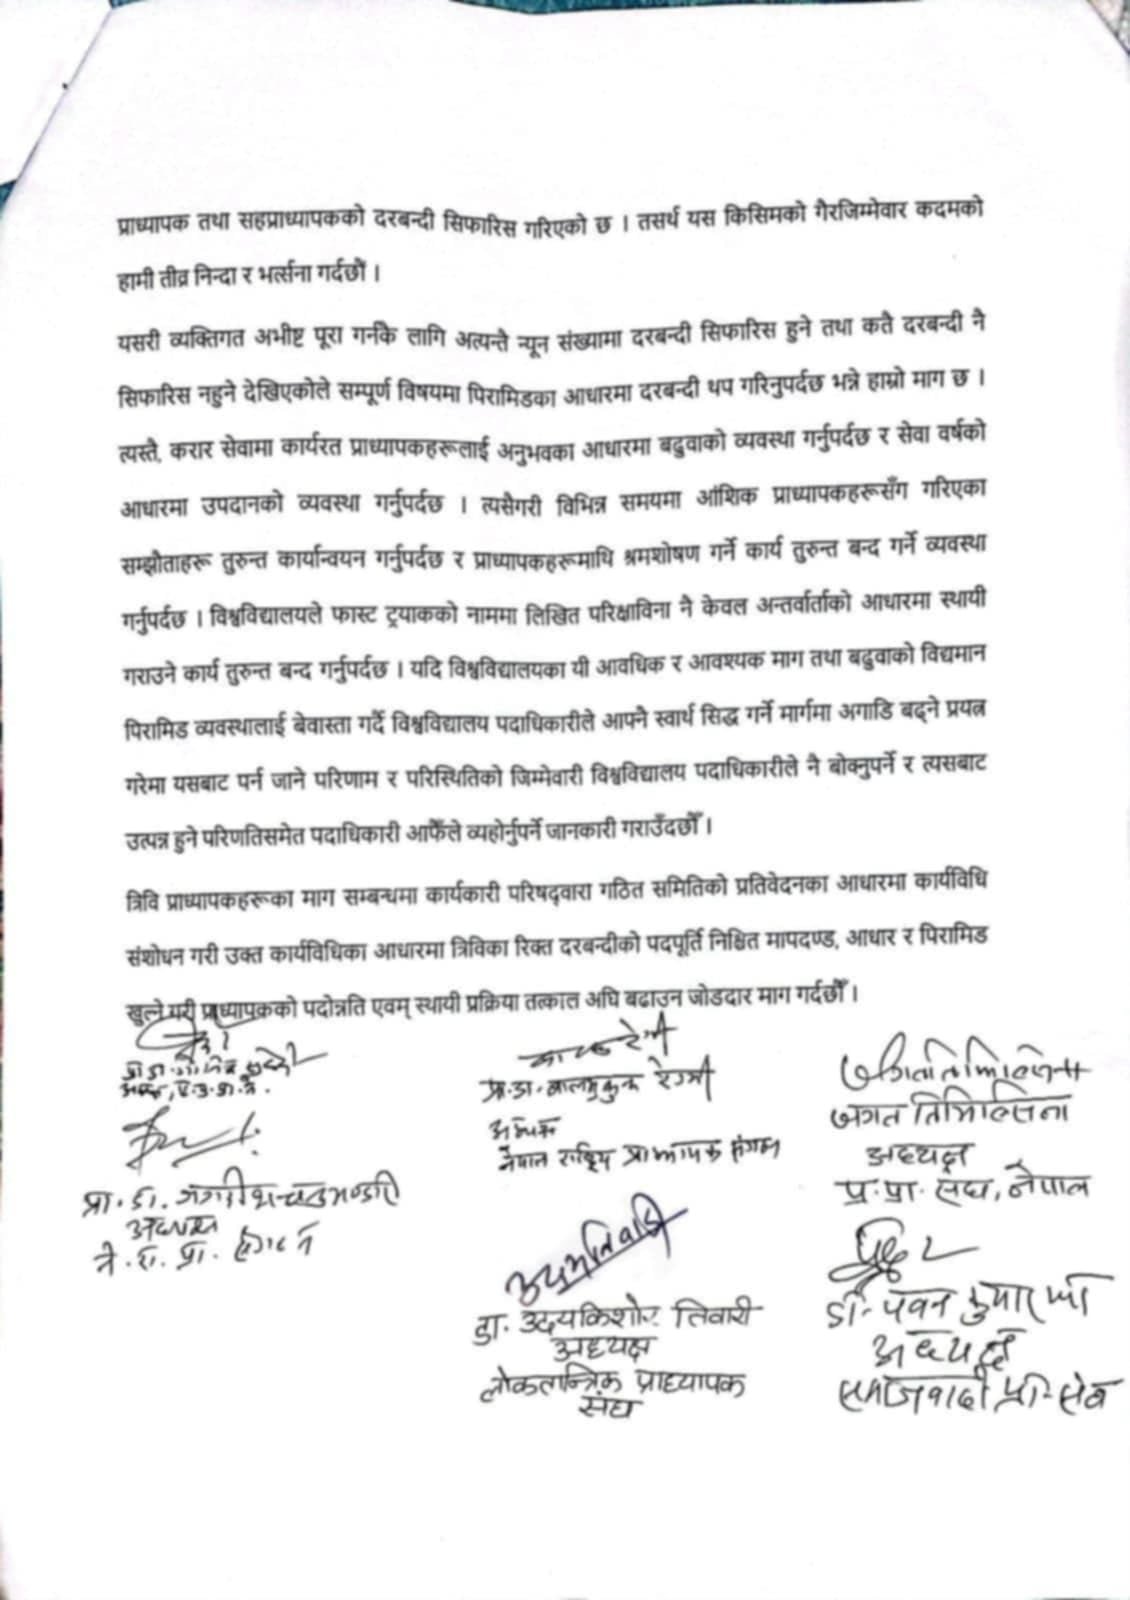 प्राध्यापक तथा सहप्राध्यापकको दरबन्दी सिफारिस गरिएको छ । तसर्थ यस किसिमको गैरजिम्मेवार कदमको
हामी तीव्र निन्दा र भर्त्सना गर्दछौं ।
यसरी व्यक्तिगत अभीष्ट पूरा गर्नकै लागि अत्यन्तै न्यून संख्यामा दरबन्दी सिफारिस हुने तथा कतै दरबन्दी नै
सिफारिस नहुने देखिएकोले सम्पूर्ण विषयमा पिरामिडका आधारमा दरबन्दी थप गरिनुपर्दछ भन्ने हाम्रो माग छ ।
त्यस्तै, करार सेवामा कार्यरत प्राध्यापकहरूलाई अनुभवका आधारमा बढुवाको व्यवस्था गर्नुपर्दछ र सेवा वर्षको
आधारमा उपदानको व्यवस्था गर्नुपर्दछ । त्यसैगरी विभिन्न समयमा आंशिक प्राध्यापकहरूसँग गरिएका
सम्झौताहरू तुरुन्त कार्यान्वयन गर्नुपर्दछ र प्राध्यापकहरूमाथि श्रमशोषण गर्ने कार्य तुरुन्त बन्द गर्ने व्यवस्था
गर्नुपर्दछ । विश्वविद्यालयले फास्ट ट्र्याकको नाममा लिखित परिक्षाविना नै केवल अन्तर्वार्ताको आधारमा स्थायी
गराउने कार्य तुरुन्त बन्द गर्नुपर्दछ । यदि विश्वविद्यालयका यी आवधिक र आवश्यक माग तथा बढुवाको विद्यमान
पिरामिड व्यवस्थालाई बेवास्ता गर्दै विश्वविद्यालय पदाधिकारीले आफ्नै स्वार्थ सिद्ध गर्ने मार्गमा अगाडि बढ्ने प्रयत्न
गरेमा यसबाट पर्न जाने परिणाम र परिस्थितिको जिम्मेवारी विश्वविद्यालय पदाधिकारीले नै बोक्नुपर्ने र त्यसबाट
उत्पन्न हुने परिणतिसमेत पदाधिकारी आफैंले व्यहोर्नुपर्ने जानकारी गराउँदछौँ ।
त्रिवि प्राध्यापकहरूका माग सम्बन्धमा कार्यकारी परिषद्वारा गठित समितिको प्रतिवेदनका आधारमा कार्यविधि
संशोधन गरी उक्त कार्यविधिका आधारमा त्रिविका रिक्त दरबन्दीको पदपूर्ति निश्चित मापदण्ड, आधार र पिरामिड
खुल्ने गरी प्राध्यापकको पदोन्नति एवम् स्थायी प्रक्रिया तत्काल अघि बढाउन जोडदार माग गर्दछौँ ।
प्रा. डा. बालमुकुन्द रेग्मी
अध्यक्ष
नेपाल राष्ट्रिय प्राध्यापक संगठन
जगत तिमिल्सिना
अध्यक्ष
प्र. प्रा. संघ, नेपाल
प्रा. डा.
अध्यक्ष
ने. रा. प्रा.
उदय तिवारी
डा. उदयकिशोर तिवारी
अध्यक्ष
लोकतान्त्रिक प्राध्यापक
संघ
डा. पवन कुमार झा
अध्यक्ष
समाजवादी प्रा.